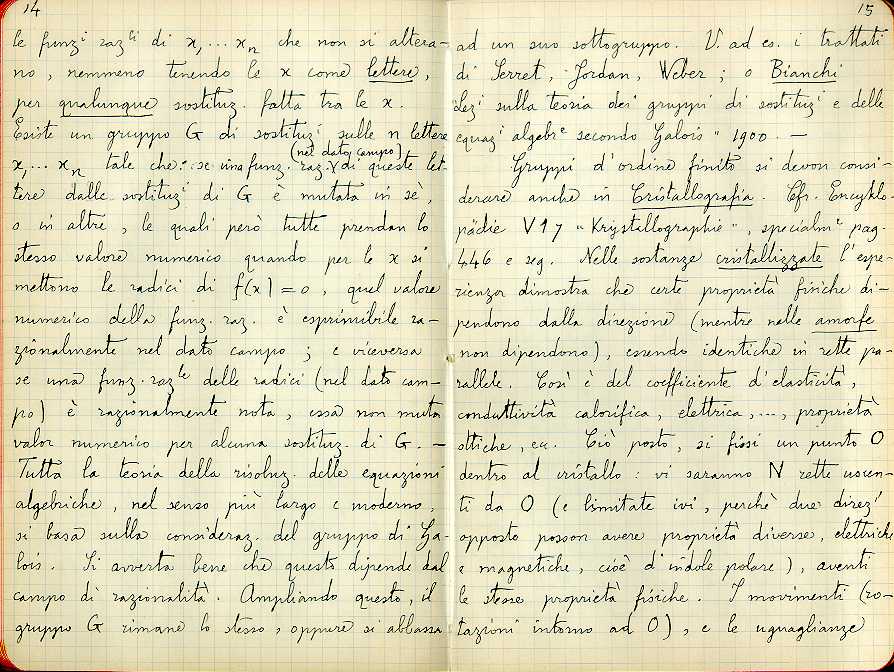 14
le funzⁱ razˡⁱ di x₁ ... xₙ che non si altera-
no, nemmeno tenendo le x come lettere,
per qualunque sostituz. fatta tra le x.
Esiste un gruppo G di sostituzⁱ sulle n lettere
x₁ ... xₙ tale che: se una funz. raz. (nel dato campo) di queste let-
tere dalle sostituzⁱ di G è mutata in sè,
o in altre, le quali però tutte prendan lo
stesso valore numerico quando per le x si
mettono le radici di f(x)=0, quel valore
numerico della funz. raz. è esprimibile ra-
zionalmente nel dato campo; e viceversa
se una funz. razˡᵉ delle radici (nel dato cam-
po) è razionalmente nota, essa non muta
valor numerico per alcuna sostituz. di G. —
Tutta la teoria della risoluz. delle equazioni
algebriche, nel senso più largo e moderno,
si basa sulla consideraz. del gruppo di Ga-
lois. Si avverta bene che questo dipende dal
campo di razionalità. Ampliando questo, il
gruppo G rimane lo stesso, oppure si abbassa
15
ad un suo sottogruppo. V. ad es. i trattati
di Serret, Jordan, Weber; o Bianchi
"Lezⁱ sulla teoria dei gruppi di sostituzⁱ e delle
equazⁱ algebrᵉ secondo Galois" 1900. —
Gruppi d'ordine finito si devon consi-
derare anche in Cristallografia. Cfr. Encyklo-
pädie V 17 "Krystallographie", specialmᵉ pag.
446 e seg. Nelle sostanze cristallizzate l'espe-
rienza dimostra che certe proprietà fisiche di-
pendono dalla direzione (mentre nelle amorfe
non dipendono), essendo identiche in rette pa-
rallele. Così è del coefficiente d'elasticità,
conduttività calorifica, elettrica, ..., proprietà
ottiche, ecc. Ciò posto, si fissi un punto O
dentro al cristallo: vi saranno N rette uscen-
ti da O (e limitate ivi, perchè due direzⁱ
opposte posson avere proprietà diverse, elettriche
e magnetiche, cioè d'indole polare), aventi
le stesse proprietà fisiche. I movimenti (ro-
tazioni intorno ad O), e le uguaglianze